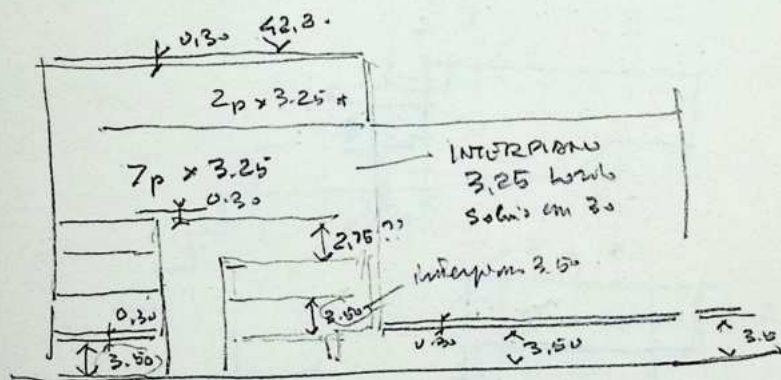 0,30 42,3.
2p x 3.25 *
7p x 3.25
0.30
INTERPIANO
3,25 lordo
Solaio cm 30
2,75 ??
interpiano 3.50
0,30
3.50
0.30
3,50